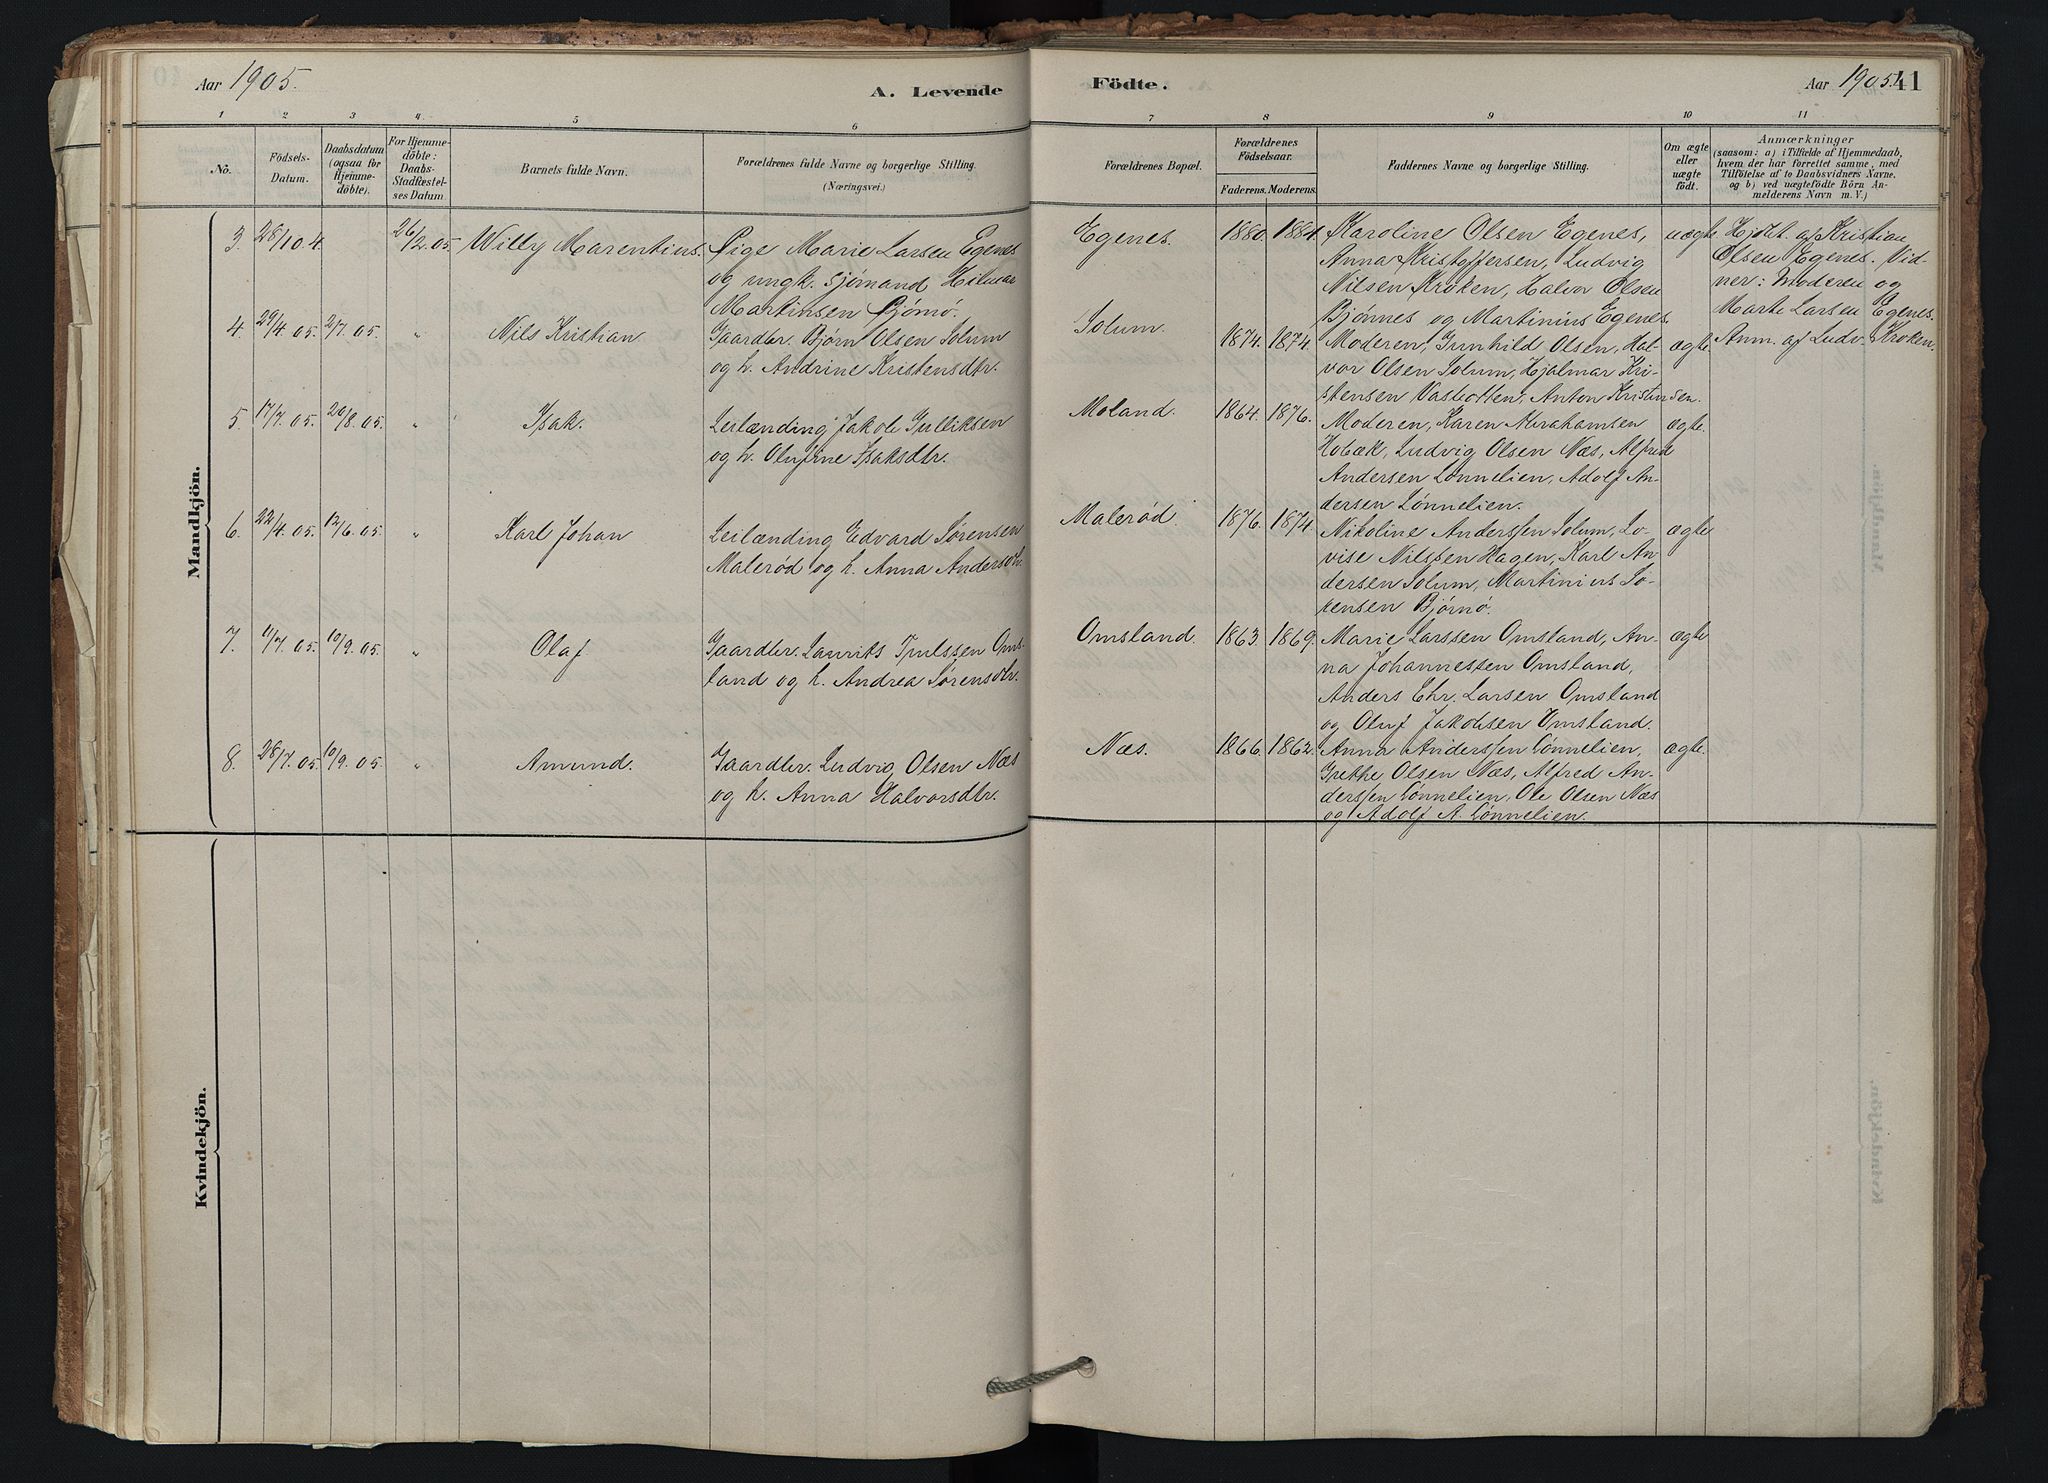 Aar 1905.
A. Levende
Födte.
Aar 1905.
41
1 2 3 4 5 6 7 8 9 10 11
No.
Födsels-
Datum.
Daabsdatum
(ogsaa for
Hjemme-
döbte).
For Hjemme-
döbte:
Daabs-
Stadfæstel-
ses Datum.
Barnets fulde Navn.
Forældrenes fulde Navne og borgerlige Stilling.
(Næringsvei.)
Forældrenes Bopæl.
Forældrenes
Födselsaar.
Faderens. Moderens.
Faddernes Navne og borgerlige Stilling.
Om ægte
eller
uægte
födt.
Anmærkninger
(saasom: a) i Tilfælde af Hjemmedaab,
hvem der har forrettet samme, med
Tilföielse af to Daabsvidners Navne,
og b) ved uægtefödte Börn An-
melderens Navn m. V.)
Mandkjön.
3. 28/10.4. 26/2.05. Willy Marentius.
Pige Marie Larsen Egenes
og ungk. Sjømand Hilmar
Martinsen Bjørnø.
Egenes. 1880. 1884.
Karoline Olsen Egenes,
Anna Kristoffersen, Ludvig
Nilsen Kroken, Halvor Olsen
Bjønnes og Martinius Egenes.
uægte.
Hjdbt. af Kristian
Olsen Egenes. Vid-
ner: Moderen og
Marte Larsen Egenes.
Anm. af Ludv. Kroken.
4. 29/4.05. 2/7.05. " Nils Kristian
Gaardbr. Bjørn Olsen Solum
og h. Andrine Kristensdtr.
Solum. 1874. 1874.
Moderen, Gunhild Olsen, Hal-
vor Olsen Solum, Hjalmar Kri-
stensen Vasbotten, Anton Kristensen.
ægte.
5. 17/7.05. 20/8.05. " Isak.
Leilænding Jakob Gulliksen
og h. Olufine Isaksdtr.
Moland. 1864. 1876.
Moderen, Karen Abrahamsen
Hobæk, Ludvig Olsen Næs, Alfred
Andersen Lønnelien, Adolf An-
dersen Lønnelien.
ægte.
6. 22/4.05. 12/6.05. " Karl Johan
Leilænding Edvard Sørensen
Malerød og h. Anna Andersdtr.
Malerød. 1876. 1874.
Nikoline Anderssen Solum, Lo-
vise Nilssen Hagen, Karl An-
dersen Solum, Martinius Sø-
rensen Bjørnø.
ægte
7. 11/7.05. 10/9.05. " Olaf
Gaardbr. Laurits Trulssen Oms-
land og h. Andrea Sørensdtr.
Omsland. 1863. 1869.
Marie Larssen Omsland, An-
na Johannessen Omsland,
Anders Chr. Larsen Omsland
og Oluf Jakobsen Omsland.
ægte
8. 28/7.05. 10/9.05. " Amund.
Gaardbr. Ludvig Olsen Næs
og h. Anna Halvorsdtr.
Næs. 1866. 1862.
Anna Anderssen Lønnelien,
Grethe Olsen Næs, Alfred An-
derssen Lønnelien, Ole Olsen Næs
og Adolf A. Lønnelien.
ægte.
Kvindekjön.